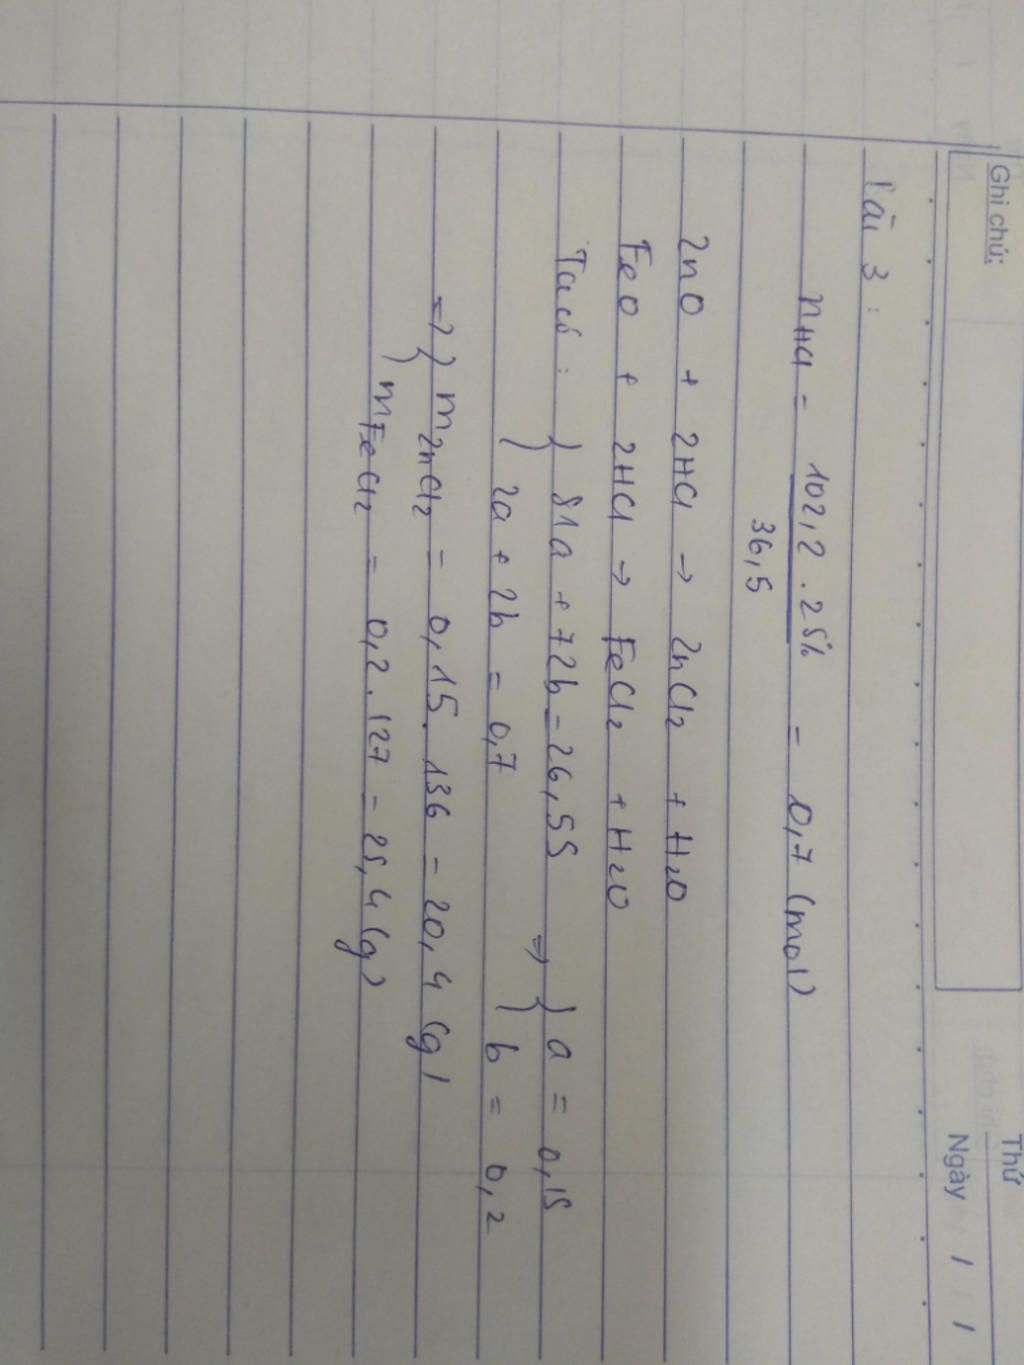 Ghi chú:
Thứ
Ngày / /
Bài 3 :
nHCl = 102,2 . 25% / 36,5 = 0,7 (mol)
ZnO + 2HCl → ZnCl₂ + H₂O
FeO + 2HCl → FeCl₂ + H₂O
Ta có : } 81a + 72b = 26,55 => } a = 0,15
2a + 2b = 0,7 b = 0,2
=> } mZnCl₂ = 0,15 . 136 = 20,4 (g)
mFeCl₂ = 0,2 . 127 = 25,4 (g)